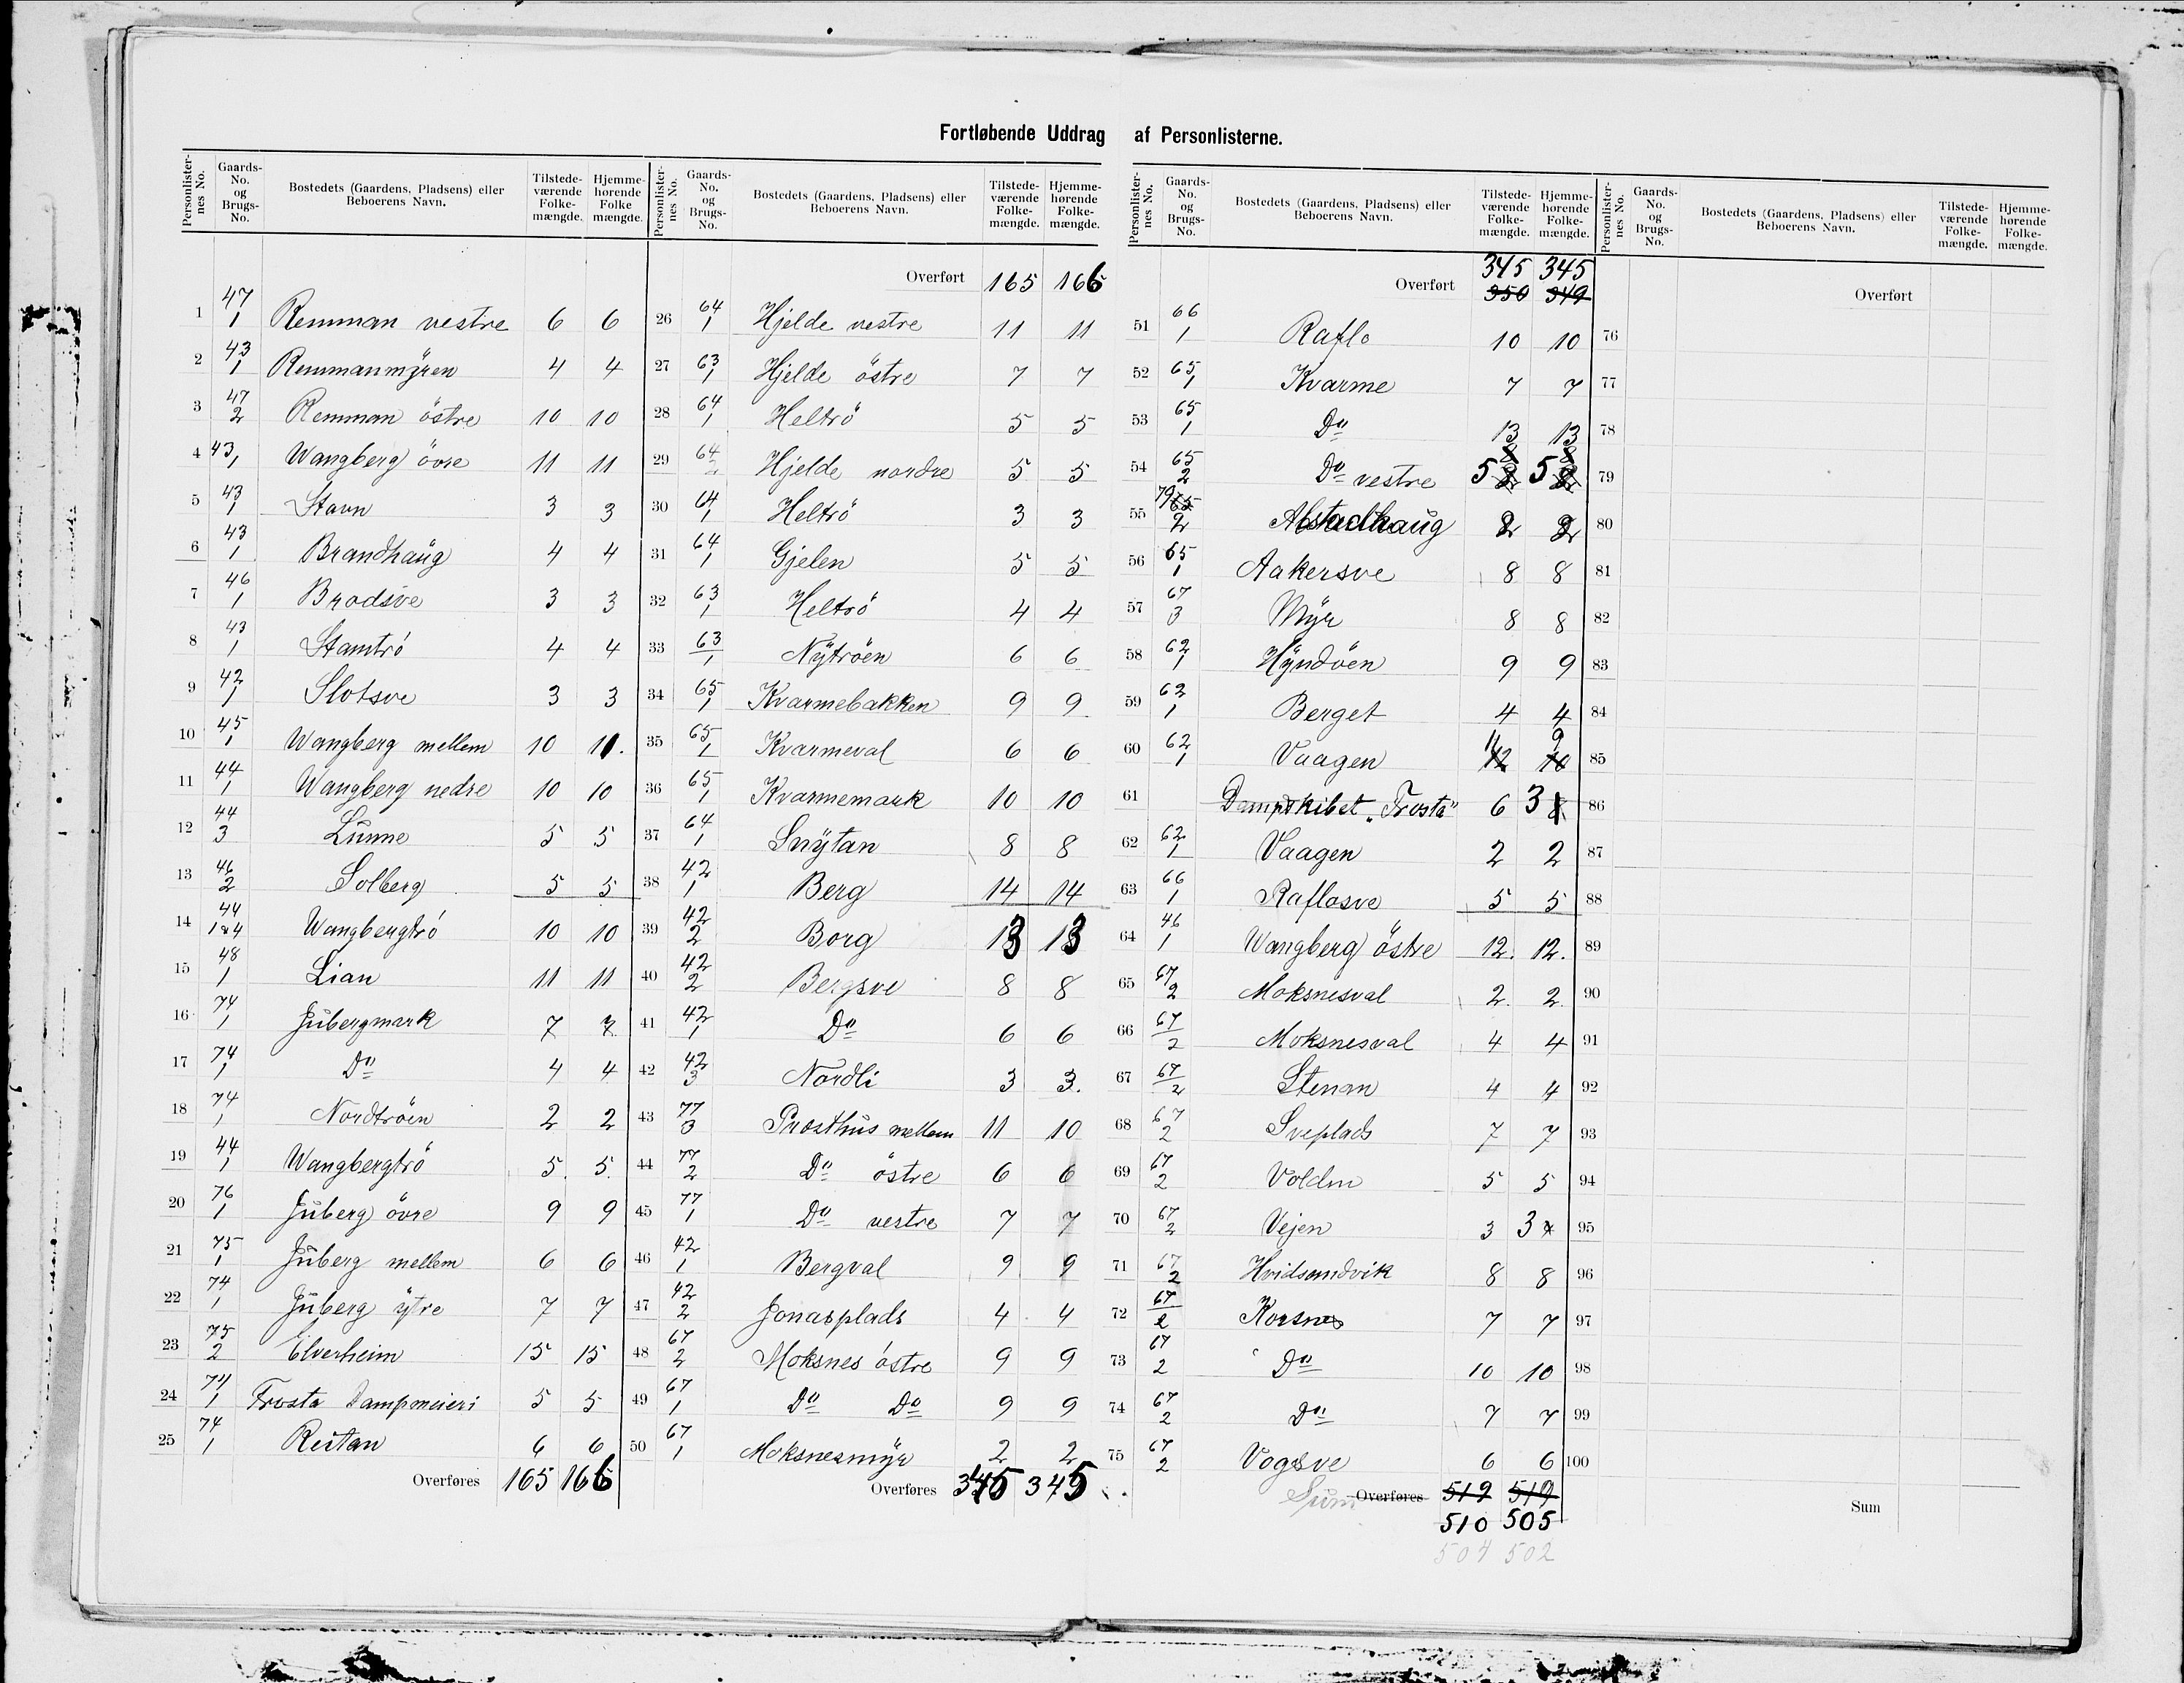 Fortløbende Uddrag af Personlisterne.
Personlisternes No. | Gaards-No. og Brugs-No. | Bostedets (Gaardens, Pladsens) eller Beboerens Navn. | Tilstedeværende Folkemængde. | Hjemmehørende Folkemængde.
1 47/1 Remman vestre 6 6
2 43/1 Remmanmÿren 4 4
3 47/2 Remman östre 10 10
4 43/1 Wangberg övre 11 11
5 43/1 Stavn 3 3
6 43/1 Brandhaug 4 4
7 46/1 Brodsve 3 3
8 43/1 Stamtrö 4 4
9 42/1 Slotsve 3 3
10 45/1 Wangberg mellem 10 11.
11 44/1 Wangberg nedre 10 10
12 44/3 Lunne 5 5
13 46/2 Solberg 5 5
14 44/1&4 Wangbergtrö 10 10
15 48/1 Lian 11 11
16 74/1 Jubergmark 7 7
17 74/1 Do 4 4
18 74/1 Nordtröen 2 2
19 44/1 Wangbergtrö 5. 5.
20 76/1 Juberg övre 9 9
21 75/1 Juberg mellem 6 6
22 74/1 Juberg ÿtre 7 7
23 75/2 Elverheim 15 15
24 74/1 Frosta Dampmeieri 5 5
25 74/1 Reitan 6 6
Overføres 165 166
Personlisternes No. | Gaards-No. og Brugs-No. | Bostedets (Gaardens, Pladsens) eller Beboerens Navn. | Tilstedeværende Folkemængde. | Hjemmehørende Folkemængde.
Overført 165 166
26 64/1 Hjelde vestre 11 11
27 63/1 Hjelde östre 7 7
28 64/1 Heltrö 5 5
29 64/2 Hjelde nordre 5 5
30 64/1 Heltrö 3 3
31 64/1 Gjelen 5 5
32 63/1 Heltrö 4 4
33 63/1 Nÿtröen 6 6
34 65/1 Kvarmebakken 9 9
35 65/1 Kvarmeval 6 6
36 65/1 Kvarmemark 10 10
37 64/1 Snÿtan 8 8
38 42/1 Berg 14 14
39 42/2 Borg 13 13
40 42/2 Bergsve 8 8
41 42/1 Do 6 6
42 42/3 Nordli 3 3.
43 77/3 Prosthus mellem 11 10
44 77/2 Do östre 6 6
45 77/1 Do vestre 7 7
46 42/1 Bergval 9 9
47 42/2 Jonasplads 4 4
48 67/2 Moksnes östre 9 9
49 67/1 Do Do 9 9
50 67/1 Moksnesmÿr 2 2
Overføres 345 345
Personlisternes No. | Gaards-No. og Brugs-No. | Bostedets (Gaardens, Pladsens) eller Beboerens Navn. | Tilstedeværende Folkemængde. | Hjemmehørende Folkemængde.
345 345
Overført 350 349
51 66/1 Raflo 10 10
52 65/1 Kvarme 7 7
53 65/1 Do 13 13
54 65/2 Do vestre 5 8 5 8
55 79/2 Alstadhaug 2 2
56 65/1 Aakersve 8 8
57 67/3 Mÿr 8 8
58 62/1 Hÿndöen 9 9
59 62/1 Berget 4 4
60 62/1 Vaagen 11 12 9 10
61 Dampskibet "Frosta" 6 3
62 62/1 Vaagen 2 2
63 66/1 Raflosve 5 5
64 46/1 Wangberg östre 12. 12.
65 67/2 Moksnesval 2. 2.
66 67/2 Moksnesval 4 4
67 67/2 Stenan 4 4
68 67/2 Sveplads 7 7
69 67/2 Volden 5 5
70 67/2 Vejen 3 3
71 67/2 Hvidsandvik 8 8
72 67/2 Korsnes 7 7
73 67/2 Do 10 10
74 67/2 Do 7 7
75 67/2 Vogsve 6 6
Sum Overføres 519 519
510 505
504 502
Personlisternes No. | Gaards-No. og Brugs-No. | Bostedets (Gaardens, Pladsens) eller Beboerens Navn. | Tilstedeværende Folkemængde. | Hjemmehørende Folkemængde.
Overført
76
77
78
79
80
81
82
83
84
85
86
87
88
89
90
91
92
93
94
95
96
97
98
99
100
Sum